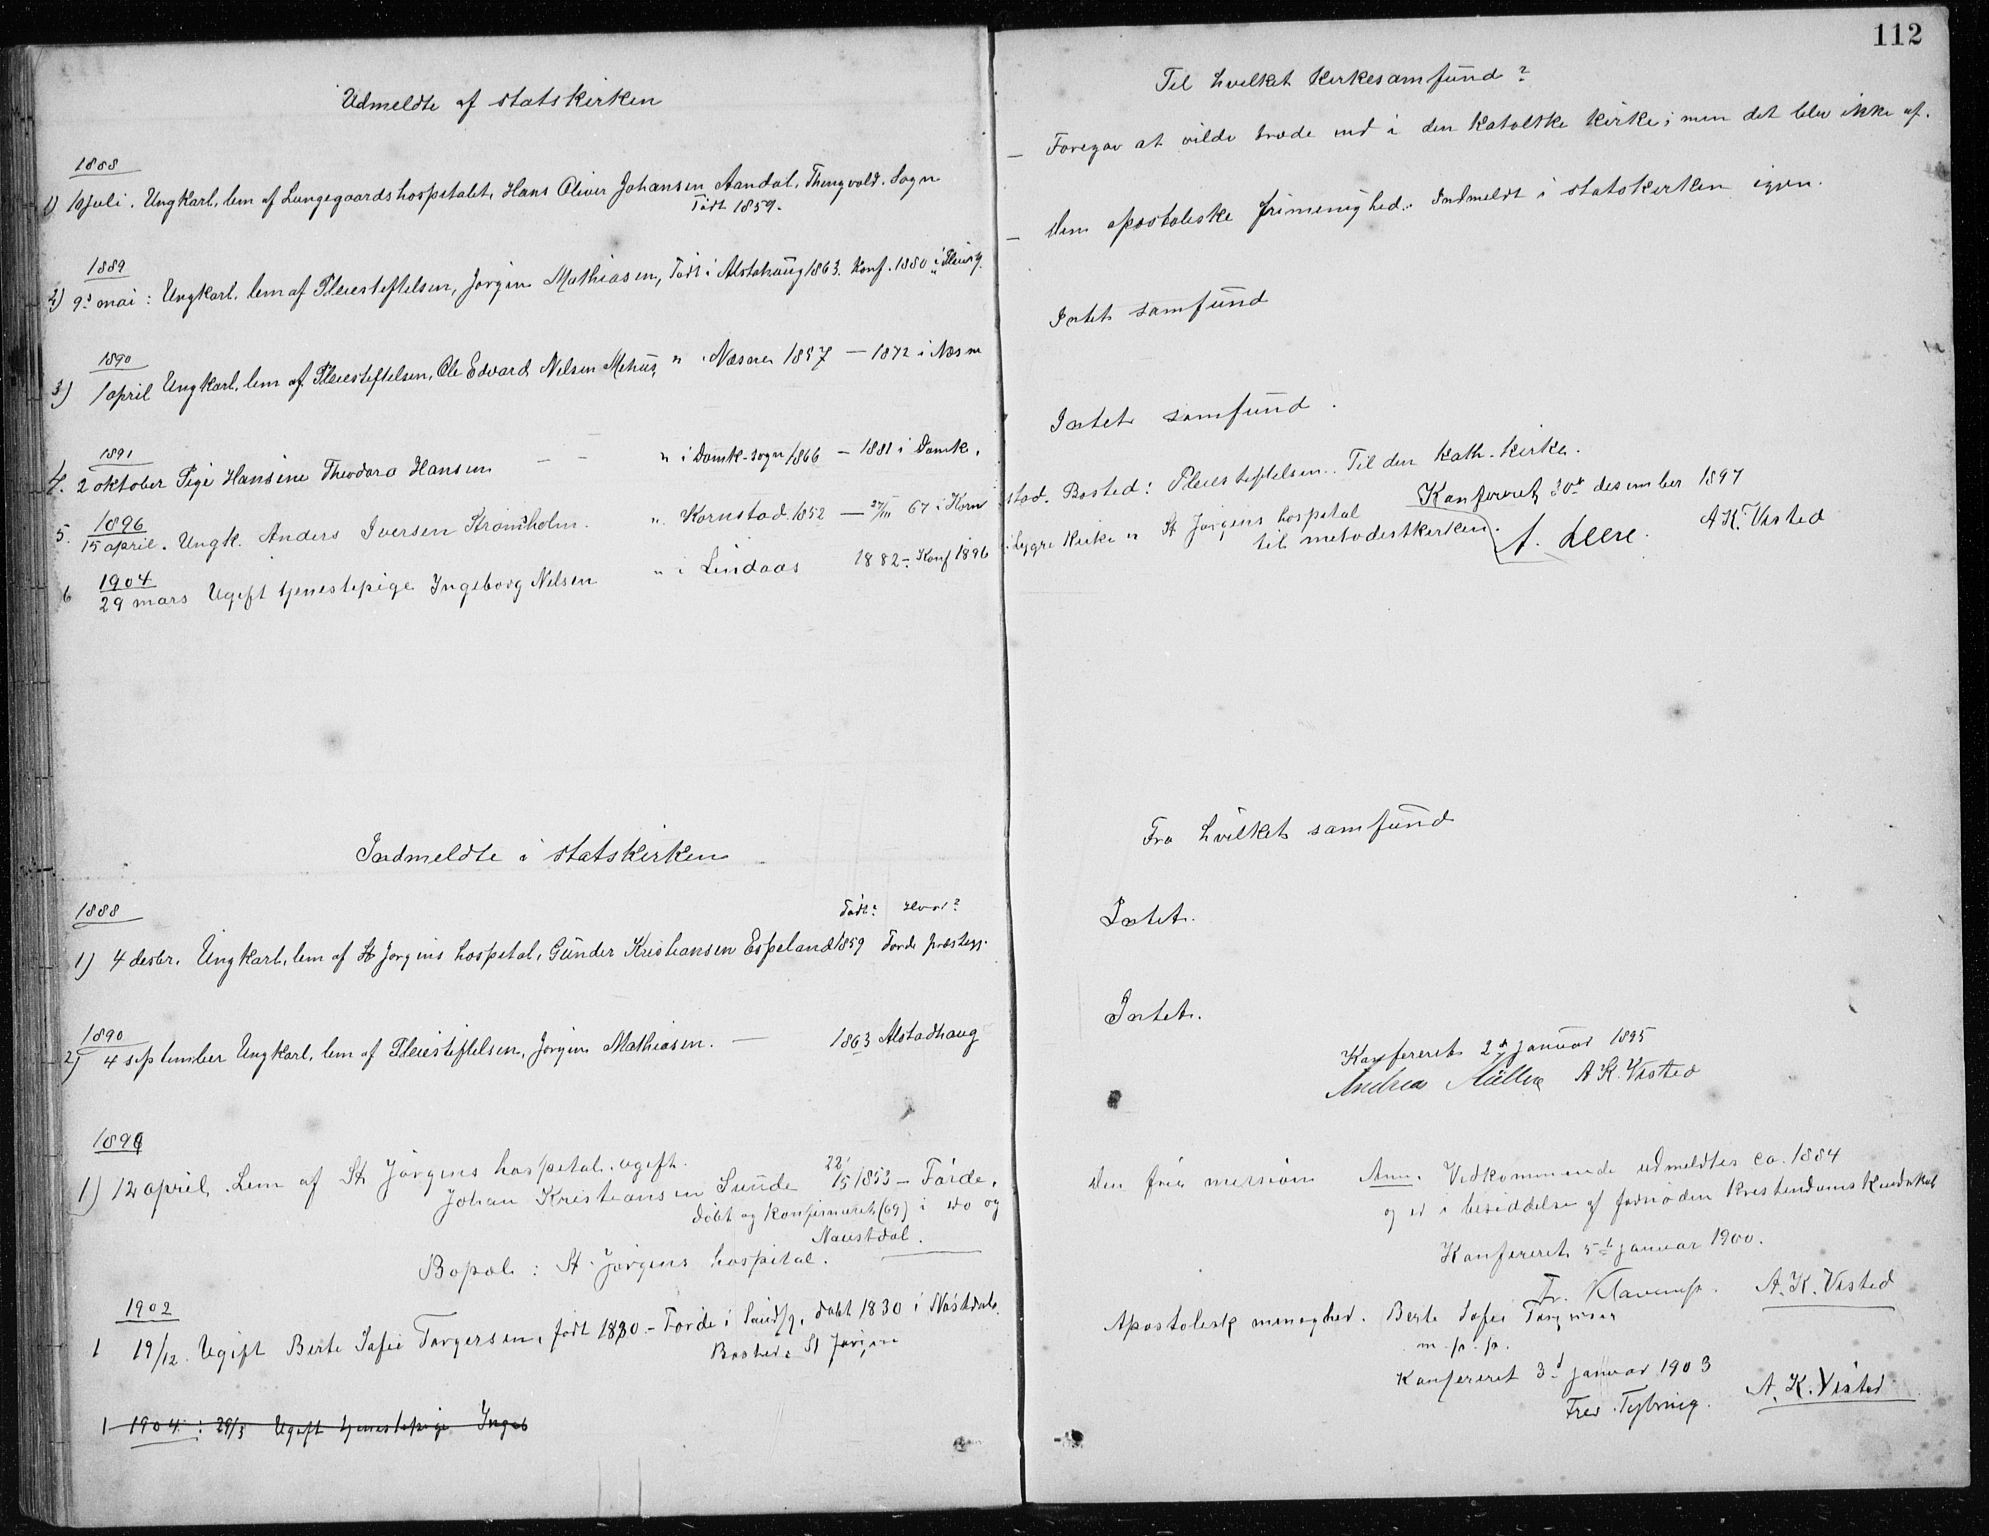 112
Udmeldte af statskirken
1888
1) 10 juli. Ungkarl, lem af Lungegaardshospitalet, Hans Oliver Johansen Aandal, Thingvold. Sogn
Født 1859.
1889
2) 9d mai: Ungkarl, lem af Pleiestiftelsen, Jørgen Mathiasen, Født i Alstahaug 1863. Konf. 1880 i Pleiestif.
1890
3) 1 april Ungkarl, lem af Pleiestiftelsen, Ole Edvard Nilsen Mehus, " i Næsne 1857 — 1872 i Næsne
1891
4. 2 oktober Pige Hansine Theodora Hansen — — " i Domk-sogn 1866 — 1881 i Domk.
1896
5. 15 april. Ungk. Anders Iversen Strømsholm. " Kornstad 1852 — 27/III 67 i Korn
1904
6 29 mars Ugift tjenestepige Ingeborg Nilsen " i Lindaas 1882 -: Konf 1896
Indmeldte i statskirken
1888
Født? Hvor?
1) 4 desbr. Ungkarl, lem af St Jørgens hospital, Gunder Kristiansen Espeland 1859 Førde præstegj.
1890
2) 4 september Ungkarl, lem af Pleiestiftelsen, Jørgen Mathiasen. — 1863 Alstadhaug
1896
1) 12 april. Lem af St Jørgens hospital. ugift.
Johan Kristiansen Sunde 22/5 1853 – Førde,
døbt og konfirmeret (69) i do og
Naustdal.
Bopæl: St. Jørgens hospital.
1902
1 19/12. Ugift Berte Sofie Torgersen, født 1830 – Førde i Søndfj, døbt 1830 i Nøstdal.
Bosted: St Jørgen
1 1904: 29/3 Ugift tjenestepige Ingeb
Til hvilket kirkesamfund?
— Foregav at vilde træde ind i den katolske kirke; men det blev ikke af.
— Den apostoliske frimenighed. Indmeldt i statskirken igjen.
Intet samfund
Intet samfund.
Bosted: Pleiestiftelsen. Til den kath. kirke.
stad. Konfereret 30te desember 1897
i Lygre Kirke " St Jørgens hospital A. K. Visted
til metodistkirken.
Fra hvilket samfund
Intet.
Intet.
Konfereret 2d januar 1895
Andrea Müller A. K. Visted
Den frie mission Anm. Vedkommende udmeldtes ca. 1884
og er i besiddelse af fornøden kristendomskundskab
Konfereret 5te januar 1900.
A. K. Visted
Apostolisk menighed. Berte Sofie Torgersen
m. p. p.
Konfereret 3d januar 1903
A. K. Visted